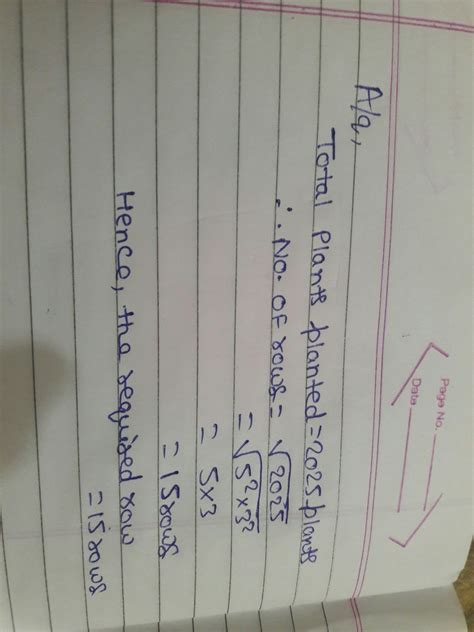 Page No.
Date
A/q,
Total plants planted = 2025 plants
∴ No. of rows = √2025
= √5²×3²
= 5×3
= 15 rows
Hence, the required row
= 15 rows